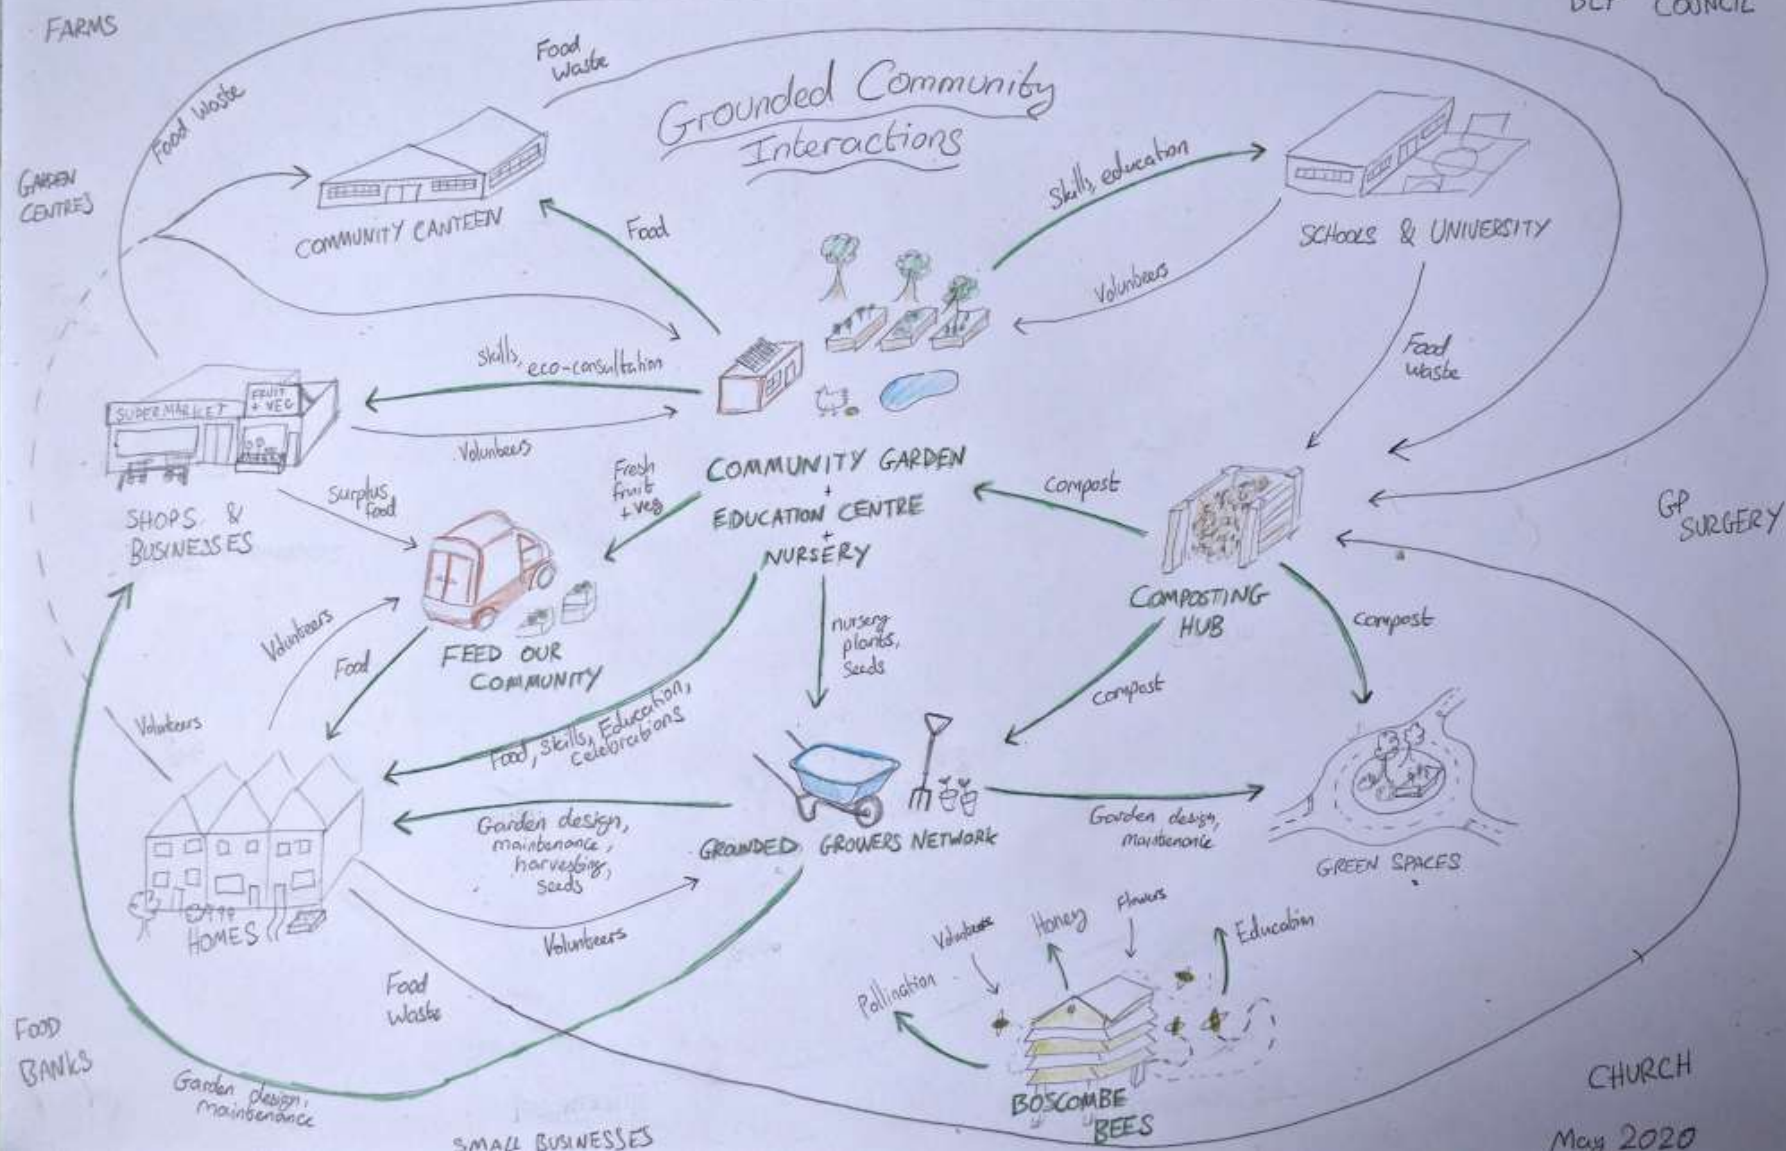 FARMS
BCP COUNCIL
Food
Waste
Grounded Community
Interactions
Food Waste
GARDEN
CENTRES
COMMUNITY CANTEEN
Food
Skills, education
SCHOOLS & UNIVERSITY
Volunteers
Food
Waste
Skills, eco-consultation
SUPERMARKET
FRUIT
+ VEG
Volunteers
SHOPS &
BUSINESSES
Surplus
food
Fresh
fruit
+ veg
COMMUNITY GARDEN
+
EDUCATION CENTRE
+
NURSERY
Compost
GP
SURGERY
COMPOSTING
HUB
Compost
Volunteers
Food
FEED OUR
COMMUNITY
nursery
plants,
Seeds
Compost
Volunteers
Food, Skills, Education,
Celebrations
Garden design,
maintenance,
harvesting,
seeds
GROUNDED GROWERS NETWORK
Garden design,
maintenance
GREEN SPACES
HOMES
Volunteers
Food
Waste
Volunteers
Honey
Flowers
Education
Pollination
BOSCOMBE
BEES
FOOD
BANKS
Garden design,
maintenance
SMALL BUSINESSES
CHURCH
May 2020